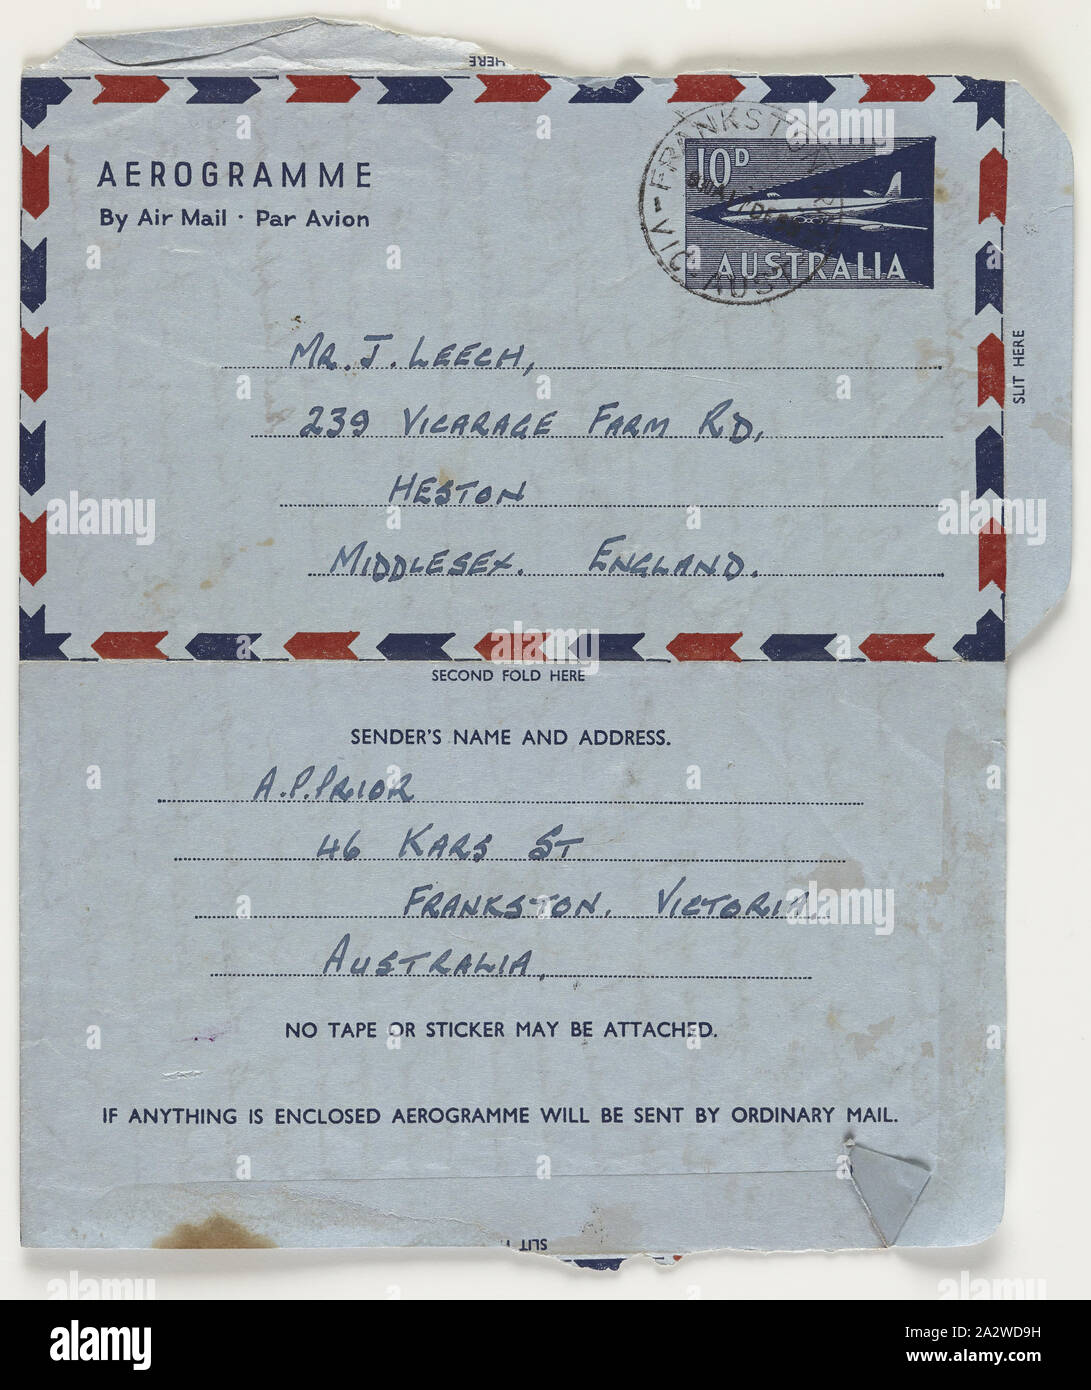 HERE
AEROGRAMME
By Air Mail · Par Avion
FRANKSTON
VIC. AUST
10D
AUSTRALIA
MR. J. LEECH,
239 VICARAGE FARM RD,
HESTON
MIDDLESEX. ENGLAND.
SLIT HERE
SECOND FOLD HERE
SENDER'S NAME AND ADDRESS.
A.P. PRIOR
46 KARS ST
FRANKSTON, VICTORIA,
AUSTRALIA,
NO TAPE OR STICKER MAY BE ATTACHED.
IF ANYTHING IS ENCLOSED AEROGRAMME WILL BE SENT BY ORDINARY MAIL.
SLIT
alamy
alamy
alamy
alamy
Image ID: 2A2WD9H
www.alamy.com